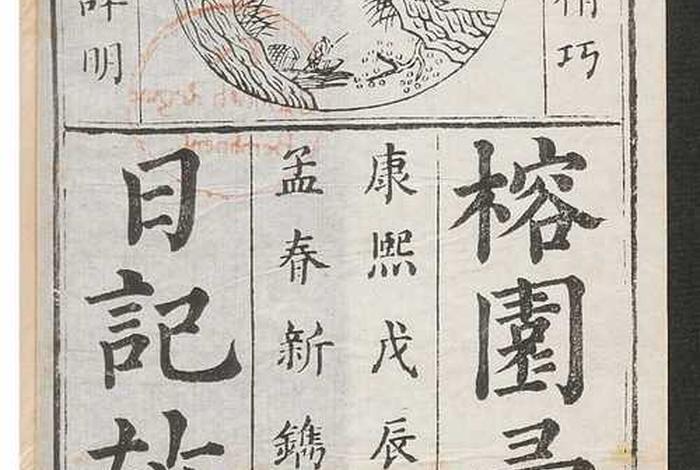 精巧
詳明
榕園
康熙戊辰
孟春新鐫
日記故